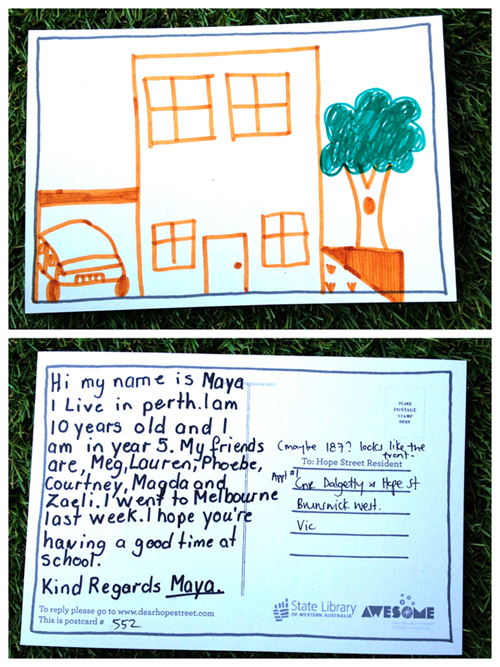 Hi my name is Maya
I Live in perth. I am
10 years old and I
am in year 5. My friends
are, Meg, Lauren, Phoebe,
Courtney, Magda and
Zaeli. I went to Melbourne
last week. I hope you're
having a good time at
school.
Kind Regards Maya.
To reply please go to www.dearhopestreet.com
This is postcard # 552
PLACE
POSTAGE
STAMP
HERE
(maybe 187? looks like the
front-
To: Hope Street Resident
Appt #1
Cnr Dalgetty & Hope St
Brunswick West.
Vic
State Library
OF WESTERN AUSTRALIA
AWESOME